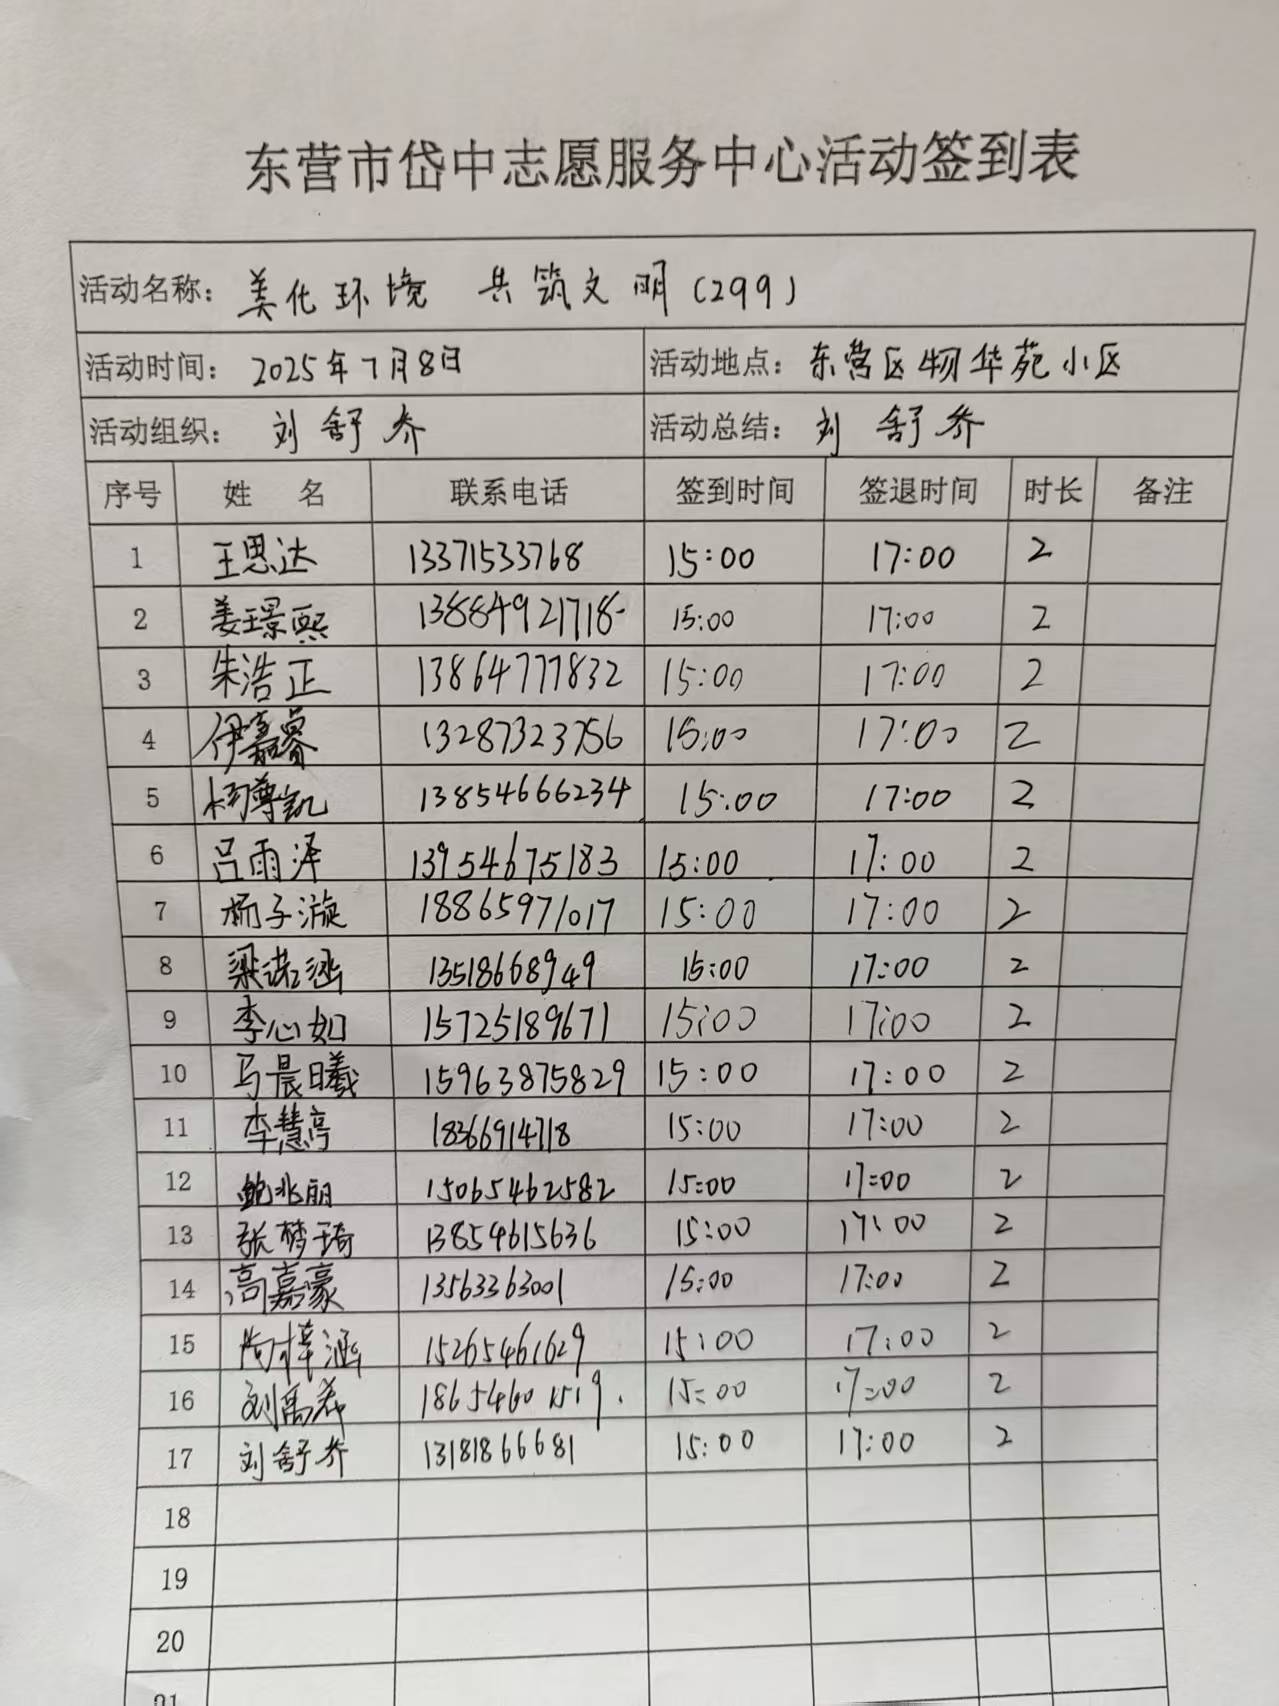 东营市岱中志愿服务中心活动签到表
活动名称: 美化环境 共筑文明(299)
活动时间: 2025年7月8日 活动地点: 东营区物华苑小区
活动组织: 刘舒乔 活动总结: 刘舒乔
序号 姓 名 联系电话 签到时间 签退时间 时长 备注
1 王思达 13371533768 15:00 17:00 2
2 姜璟熙 13884921718 15:00 17:00 2
3 朱浩正 13864777832 15:00 17:00 2
4 伊嘉睿 13287323756 15:00 17:00 2
5 杨尊凯 13854666234 15:00 17:00 2
6 吕雨泽 13954675183 15:00 17:00 2
7 杨子漩 18865971017 15:00 17:00 2
8 梁诺涵 13518668949 15:00 17:00 2
9 李心如 15725189671 15:00 17:00 2
10 马晨曦 15963875829 15:00 17:00 2
11 李慧亭 18366914718 15:00 17:00 2
12 鲍兆丽 15065462582 15:00 17:00 2
13 张梦琦 13854615636 15:00 17:00 2
14 高嘉豪 13563363001 15:00 17:00 2
15 尚梓涵 15265461629 15:00 17:00 2
16 刘禹希 18654601519 15:00 17:00 2
17 刘舒乔 13181866681 15:00 17:00 2
18
19
20
21